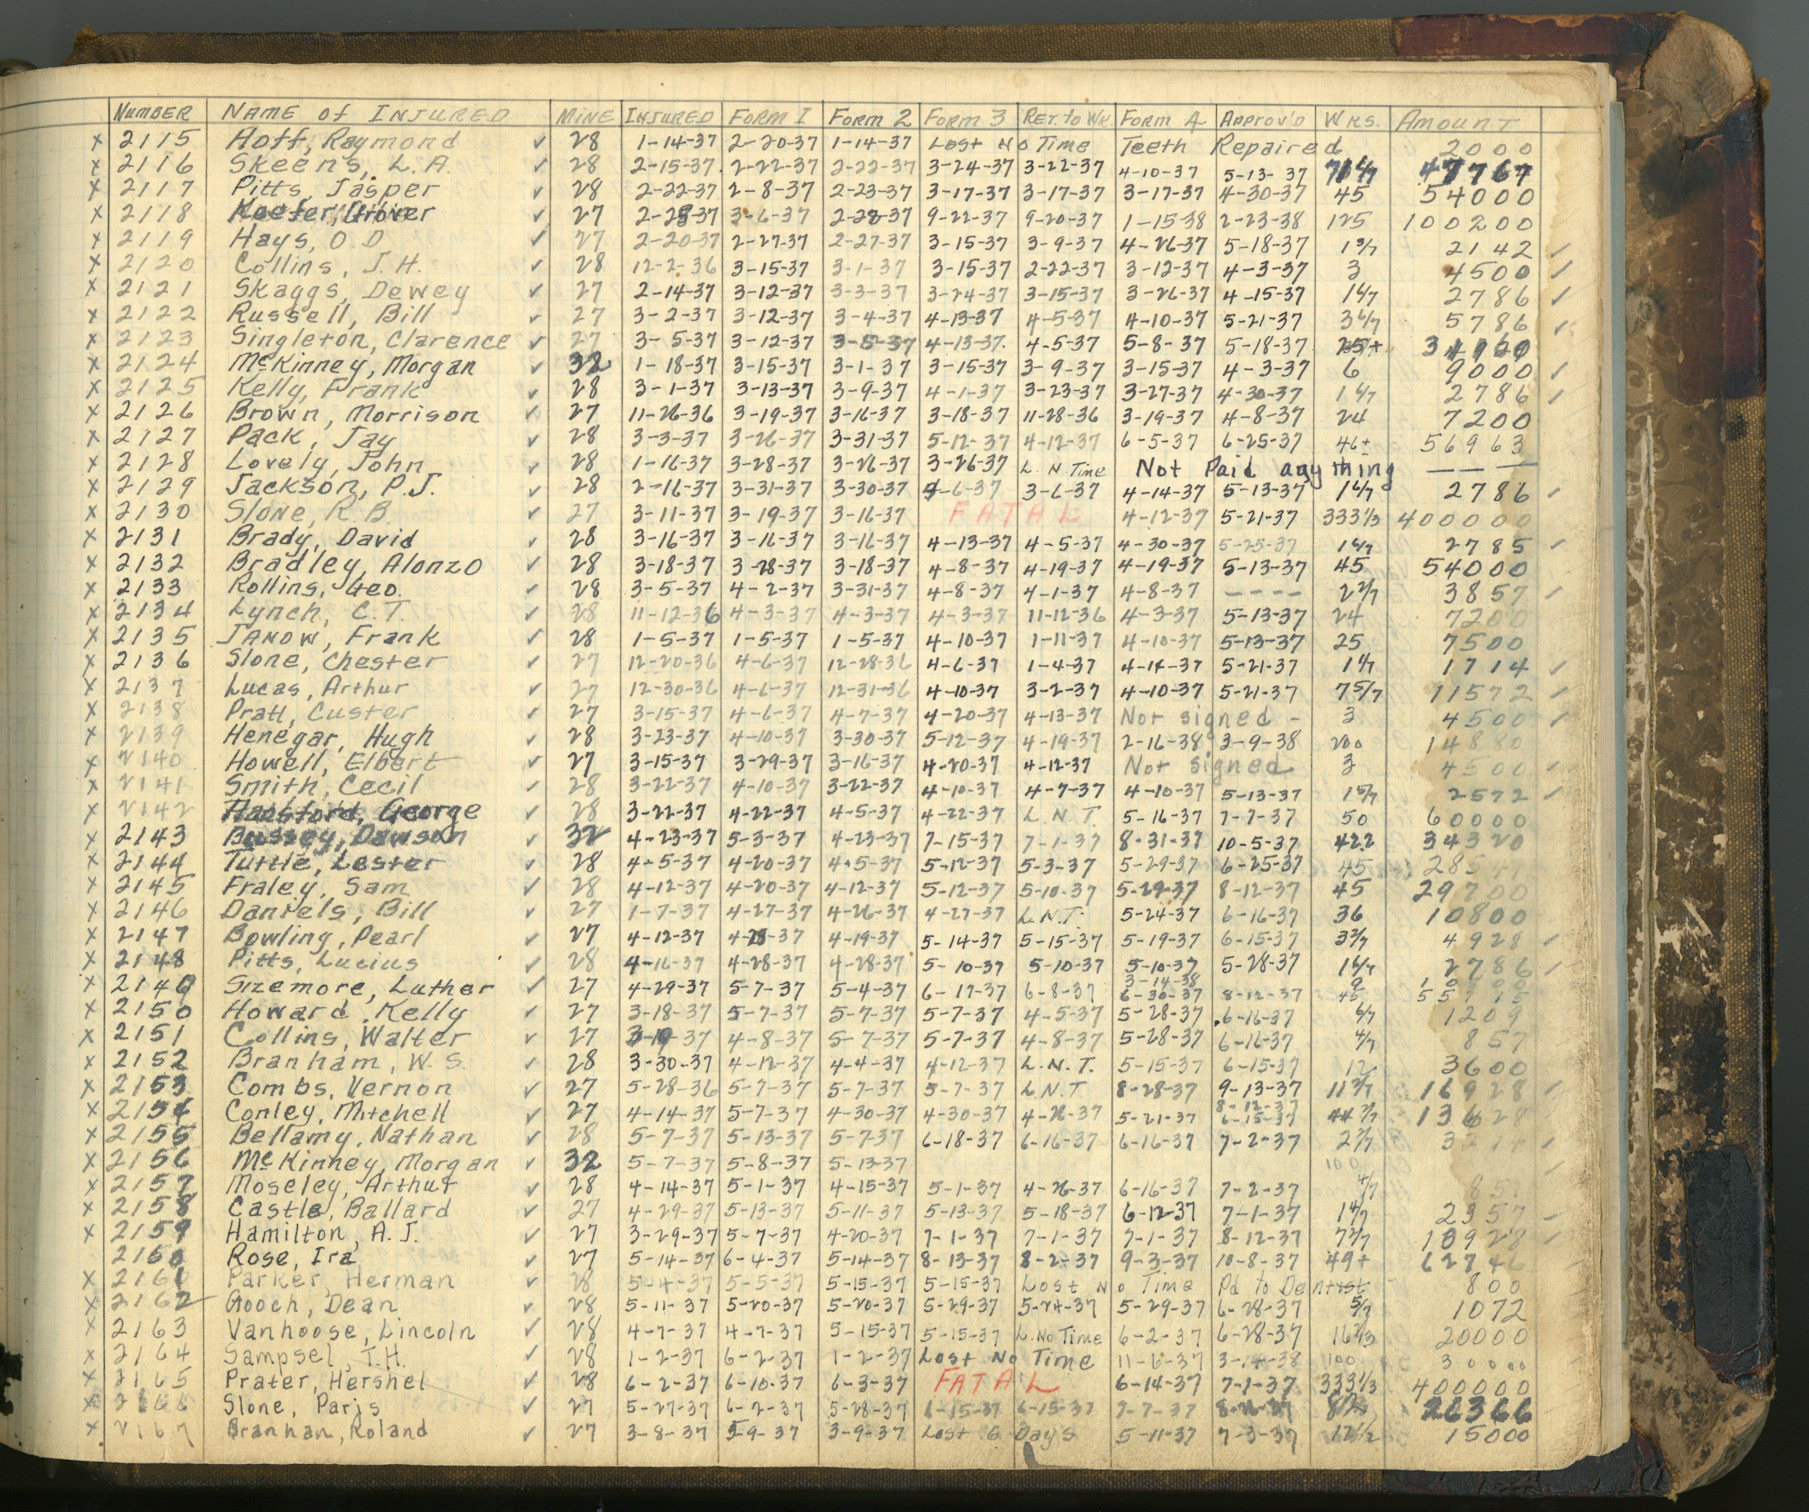 NUMBER NAME of INJURED MINE INJURED FORM 1 FORM 2 FORM 3 RET. to WK. FORM A APPROV'D WKS. AMOUNT
x 2115 Hoff, Raymond ✓ 28 1-14-37 2-20-37 1-14-37 Lost No Time Teeth Repaired 2000
x 2116 Skeens, L.A. ✓ 28 2-15-37 2-22-37 2-22-37 3-24-37 3-22-37 4-10-37 5-13-37 47767
x 2117 Pitts, Jasper ✓ 28 2-22-37 2-8-37 2-23-37 3-17-37 3-17-37 3-17-37 4-30-37 45 54000
x 2118 Keefer, Grover ✓ 27 2-28-37 3-6-37 2-28-37 9-22-37 9-20-37 1-15-38 2-23-38 125 100200
x 2119 Hays, O D ✓ 27 2-20-37 2-27-37 2-27-37 3-15-37 3-9-37 4-26-37 5-18-37 2142 ✓
x 2120 Collins, J.H. ✓ 28 12-2-36 3-15-37 3-1-37 3-15-37 2-22-37 3-12-37 4-3-37 3 4500 ✓
x 2121 Skaggs, Dewey ✓ 27 2-14-37 3-12-37 3-3-37 3-24-37 3-15-37 3-26-37 4-15-37 1 6/7 2786 ✓
x 2122 Russell, Bill ✓ 27 3-2-37 3-12-37 3-4-37 4-13-37 4-5-37 4-10-37 5-21-37 3 6/7 5786 ✓
x 2123 Singleton, Clarence ✓ 27 3-5-37 3-12-37 3-5-37 4-13-37 4-5-37 5-8-37 5-18-37 25+
x 2124 McKinney, Morgan ✓ 32 1-18-37 3-15-37 3-1-37 3-15-37 3-9-37 3-15-37 4-3-37 6 9000 ✓
x 2125 Kelly, Frank ✓ 28 3-1-37 3-13-37 3-9-37 4-1-37 3-23-37 3-27-37 4-30-37 1 6/7 2786 ✓
x 2126 Brown, Morrison ✓ 27 11-26-36 3-19-37 3-16-37 3-18-37 11-28-36 3-19-37 4-8-37 24 7200
x 2127 Pack, Jay ✓ 28 3-3-37 3-26-37 3-31-37 5-12-37 4-12-37 6-5-37 6-25-37 46+ 56963
x 2128 Lovely, John ✓ 28 1-16-37 3-28-37 3-26-37 3-26-37 L. N Time Not Paid anything — — —
x 2129 Jackson, P.J. ✓ 28 2-16-37 3-31-37 3-30-37 4-6-37 3-6-37 4-14-37 5-13-37 1 6/7 2786 ✓
x 2130 Slone, R B. ✓ 27 3-11-37 3-19-37 3-16-37 FATAL 4-12-37 5-21-37 333 1/3 400000
x 2131 Brady, David ✓ 28 3-16-37 3-16-37 3-16-37 4-13-37 4-5-37 4-30-37 5-25-37 1 6/7 2785 ✓
x 2132 Bradley, Alonzo ✓ 28 3-18-37 3-28-37 3-18-37 4-8-37 4-19-37 4-19-37 5-13-37 45 54000
x 2133 Rollins, Geo. ✓ 28 3-5-37 4-2-37 3-31-37 4-8-37 4-1-37 4-8-37 - - - - 2 4/7 3857 ✓
x 2134 Lynch, C.T. ✓ 28 11-12-36 4-3-37 4-3-37 4-3-37 11-12-36 4-3-37 5-13-37 24 7200
x 2135 Janow, Frank ✓ 28 1-5-37 1-5-37 1-5-37 4-10-37 1-11-37 4-10-37 5-13-37 25 7500
x 2136 Slone, Chester ✓ 27 12-20-36 4-6-37 12-28-36 4-6-37 1-4-37 4-14-37 5-21-37 1 1/7 1714 ✓
x 2137 Lucas, Arthur ✓ 27 12-30-36 4-6-37 12-31-36 4-10-37 3-2-37 4-10-37 5-21-37 7 5/7 11572 ✓
x 2138 Pratt, Custer ✓ 27 3-15-37 4-6-37 4-7-37 4-20-37 4-13-37 Not signed - 3 4500 ✓
x 2139 Henegar, Hugh ✓ 28 3-23-37 4-10-37 3-30-37 5-12-37 4-19-37 2-16-38 3-9-38 200 14880
x 2140 Howell, Elbert ✓ 27 3-15-37 3-29-37 3-16-37 4-20-37 4-12-37 Not signed 3 4500 ✓
x 2141 Smith, Cecil ✓ 28 3-22-37 4-10-37 3-22-37 4-10-37 4-7-37 4-10-37 5-13-37 1 5/7 2572 ✓
x 2142 Hansford, George ✓ 28 3-22-37 4-22-37 4-5-37 4-22-37 L.N.T. 5-16-37 7-7-37 50 60000
x 2143 Bussey, Dawson ✓ 32 4-23-37 5-3-37 4-23-37 7-15-37 7-1-37 8-31-37 10-5-37 422 34320
x 2144 Tuttle, Lester ✓ 28 4-5-37 4-20-37 4-5-37 5-12-37 5-3-37 5-29-37 6-25-37 45
x 2145 Fraley, Sam ✓ 28 4-12-37 4-20-37 4-12-37 5-12-37 5-10-37 5-29-37 8-12-37 45 29700
x 2146 Daniels, Bill ✓ 27 1-7-37 4-27-37 4-26-37 4-27-37 L.N.T. 5-24-37 6-16-37 36 10800
x 2147 Bowling, Pearl ✓ 27 4-12-37 4-28-37 4-19-37 5-14-37 5-15-37 5-19-37 6-15-37 3 2/7 4928 ✓
x 2148 Pitts, Lucius ✓ 28 4-16-37 4-28-37 4-28-37 5-10-37 5-10-37 5-10-37 5-28-37 1 6/7 2786 ✓
x 2149 Sizemore, Luther ✓ 27 4-29-37 5-7-37 5-4-37 6-17-37 6-8-37 3-14-38 6-30-37 8-12-37 45
x 2150 Howard, Kelly ✓ 27 3-18-37 5-7-37 5-7-37 5-7-37 4-5-37 5-28-37 6-16-37 6/7 1209
x 2151 Collins, Walter ✓ 27 3-19-37 4-8-37 5-7-37 5-7-37 4-8-37 5-28-37 6-16-37 4/7 857
x 2152 Branham, W.S. ✓ 28 3-30-37 4-12-37 4-4-37 4-12-37 L.N.T. 5-15-37 6-15-37 12 3600
x 2153 Combs, Vernon ✓ 27 5-28-36 5-7-37 5-7-37 5-7-37 L.N.T. 8-28-37 9-13-37 11 2/7 16928 ✓
x 2154 Conley, Mitchell ✓ 27 4-14-37 5-7-37 4-30-37 4-30-37 4-26-37 5-21-37 8-12-37 6-15-37 13628
x 2155 Bellamy, Nathan ✓ 28 5-7-37 5-13-37 5-7-37 6-18-37 6-16-37 6-16-37 7-2-37 2 1/7
x 2156 McKinney, Morgan ✓ 32 5-7-37 5-8-37 5-13-37 100
x 2157 Moseley, Arthur ✓ 28 4-14-37 5-1-37 4-15-37 5-1-37 4-26-37 6-16-37 7-2-37 4/7 857
x 2158 Castle, Ballard ✓ 27 4-29-37 5-13-37 5-11-37 5-13-37 5-18-37 6-12-37 7-1-37 1 4/7 2357
x 2159 Hamilton, A.J. ✓ 27 3-29-37 5-7-37 4-20-37 7-1-37 7-1-37 7-1-37 8-12-37 7 2/7 10928
2160 Rose, Ira ✓ 27 5-14-37 6-4-37 5-14-37 8-13-37 8-2-37 9-3-37 10-8-37 49+ 62746
x 2161 Parker, Herman ✓ 28 5-4-37 5-5-37 5-15-37 5-15-37 Lost No Time Pd to Dentist 800
x 2162 Gooch, Dean ✓ 28 5-11-37 5-20-37 5-20-37 5-29-37 5-24-37 5-29-37 6-28-37 5/7 1072
x 2163 Vanhoose, Lincoln ✓ 28 4-7-37 4-7-37 5-15-37 5-15-37 L. No Time 6-2-37 6-28-37 16 2/3 20000
x 2164 Sampsel, T.H. ✓ 28 1-2-37 6-2-37 1-2-37 Lost No Time 11-6-37 3-14-38 100 30000
x 2165 Prater, Hershel ✓ 28 6-2-37 6-10-37 6-3-37 FATAL 6-14-37 7-1-37 333 1/3 400000
x 2166 Slone, Paris ✓ 27 5-27-37 6-2-37 5-28-37 6-15-37 6-15-37 7-7-37 26366
x 2167 Branhan, Roland ✓ 27 3-8-37 5-9-37 3-9-37 Lost 6 Days 5-11-37 7-3-37 12 1/2 15000